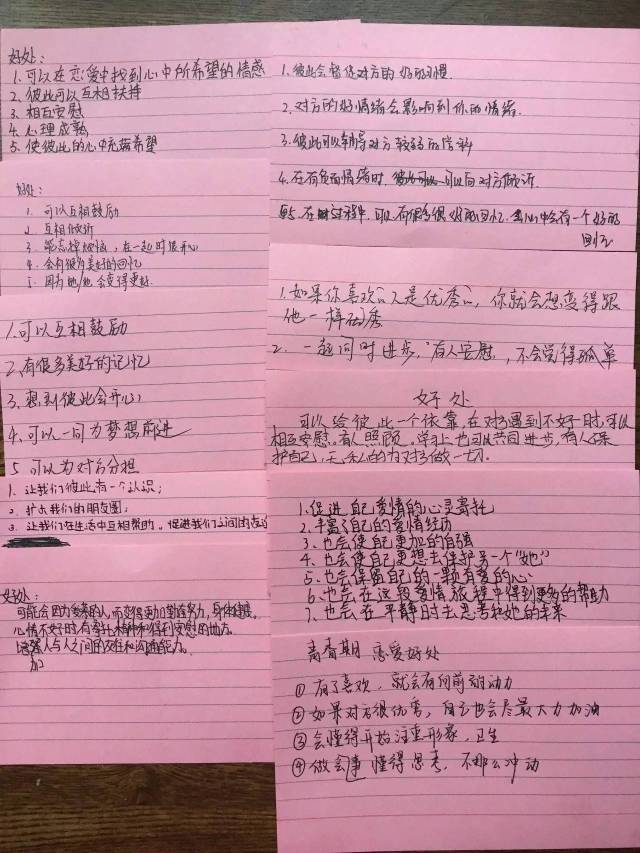 好处：
1.可以在恋爱中找到心中所希望的情感
2.彼此可以互相扶持
3.相互安慰
4.心理成熟
5.使彼此的心中充满希望
好处：
1.可以互相鼓励
2.互相倾诉
3.能忘掉烦恼，在一起时很开心
4.会有很多美好的回忆
5.因为她/他会变得更好.
1.可以互相鼓励
2.有很多美好的记忆
3.想到彼此会开心
4.可以一同为梦想前进
5.可以为对方分担
1.让我们彼此有一个认识；
2.扩大我们的朋友圈；
3.让我们在生活中互相帮助。促进我们之间的
好处：
可能会因为爱慕的人，而变得更加勤奋努力，身体健康。
心情不好时，有寄托精神和得到安慰的地方。
增强人与人之间的交往和沟通能力。
加
1.彼此会督促对方的好的习惯.
2.对方的好情绪会影响到你的情绪.
3.彼此可以辅导对方较弱的学科
4.在有负面情绪时，可以向对方倾诉.
5.在过程中，可以有很多很好的回忆.会心中会有一个好的
回忆
1.如果你喜欢的人是优秀的，你就会想变得跟
他一样优秀
2.一起同时进步，有人安慰，不会觉得孤单
好处
可以给彼此一个依靠，在对方遇到不好时，可以
相互安慰。有人照顾。学习上也可以共同进步，有人保
护自己，无私的为对方做一切。
1.促进自己爱情的心灵寄托
2.丰富了自己的爱情经历
3.也会使自己更加的自强
4.也会使自己更想去保护另一个“她”
5.也会保留自己的一颗有爱的心
6.也会在这段爱情旅程中得到更多的帮助
7.也会在平静时去思考和她的未来
青春期 恋爱好处
①有了喜欢，就会有向前的动力
②如果对方很优秀，自己也会尽最大力加油
③会懂得开始注重形象，卫生
④做会事懂得思考，不那么冲动